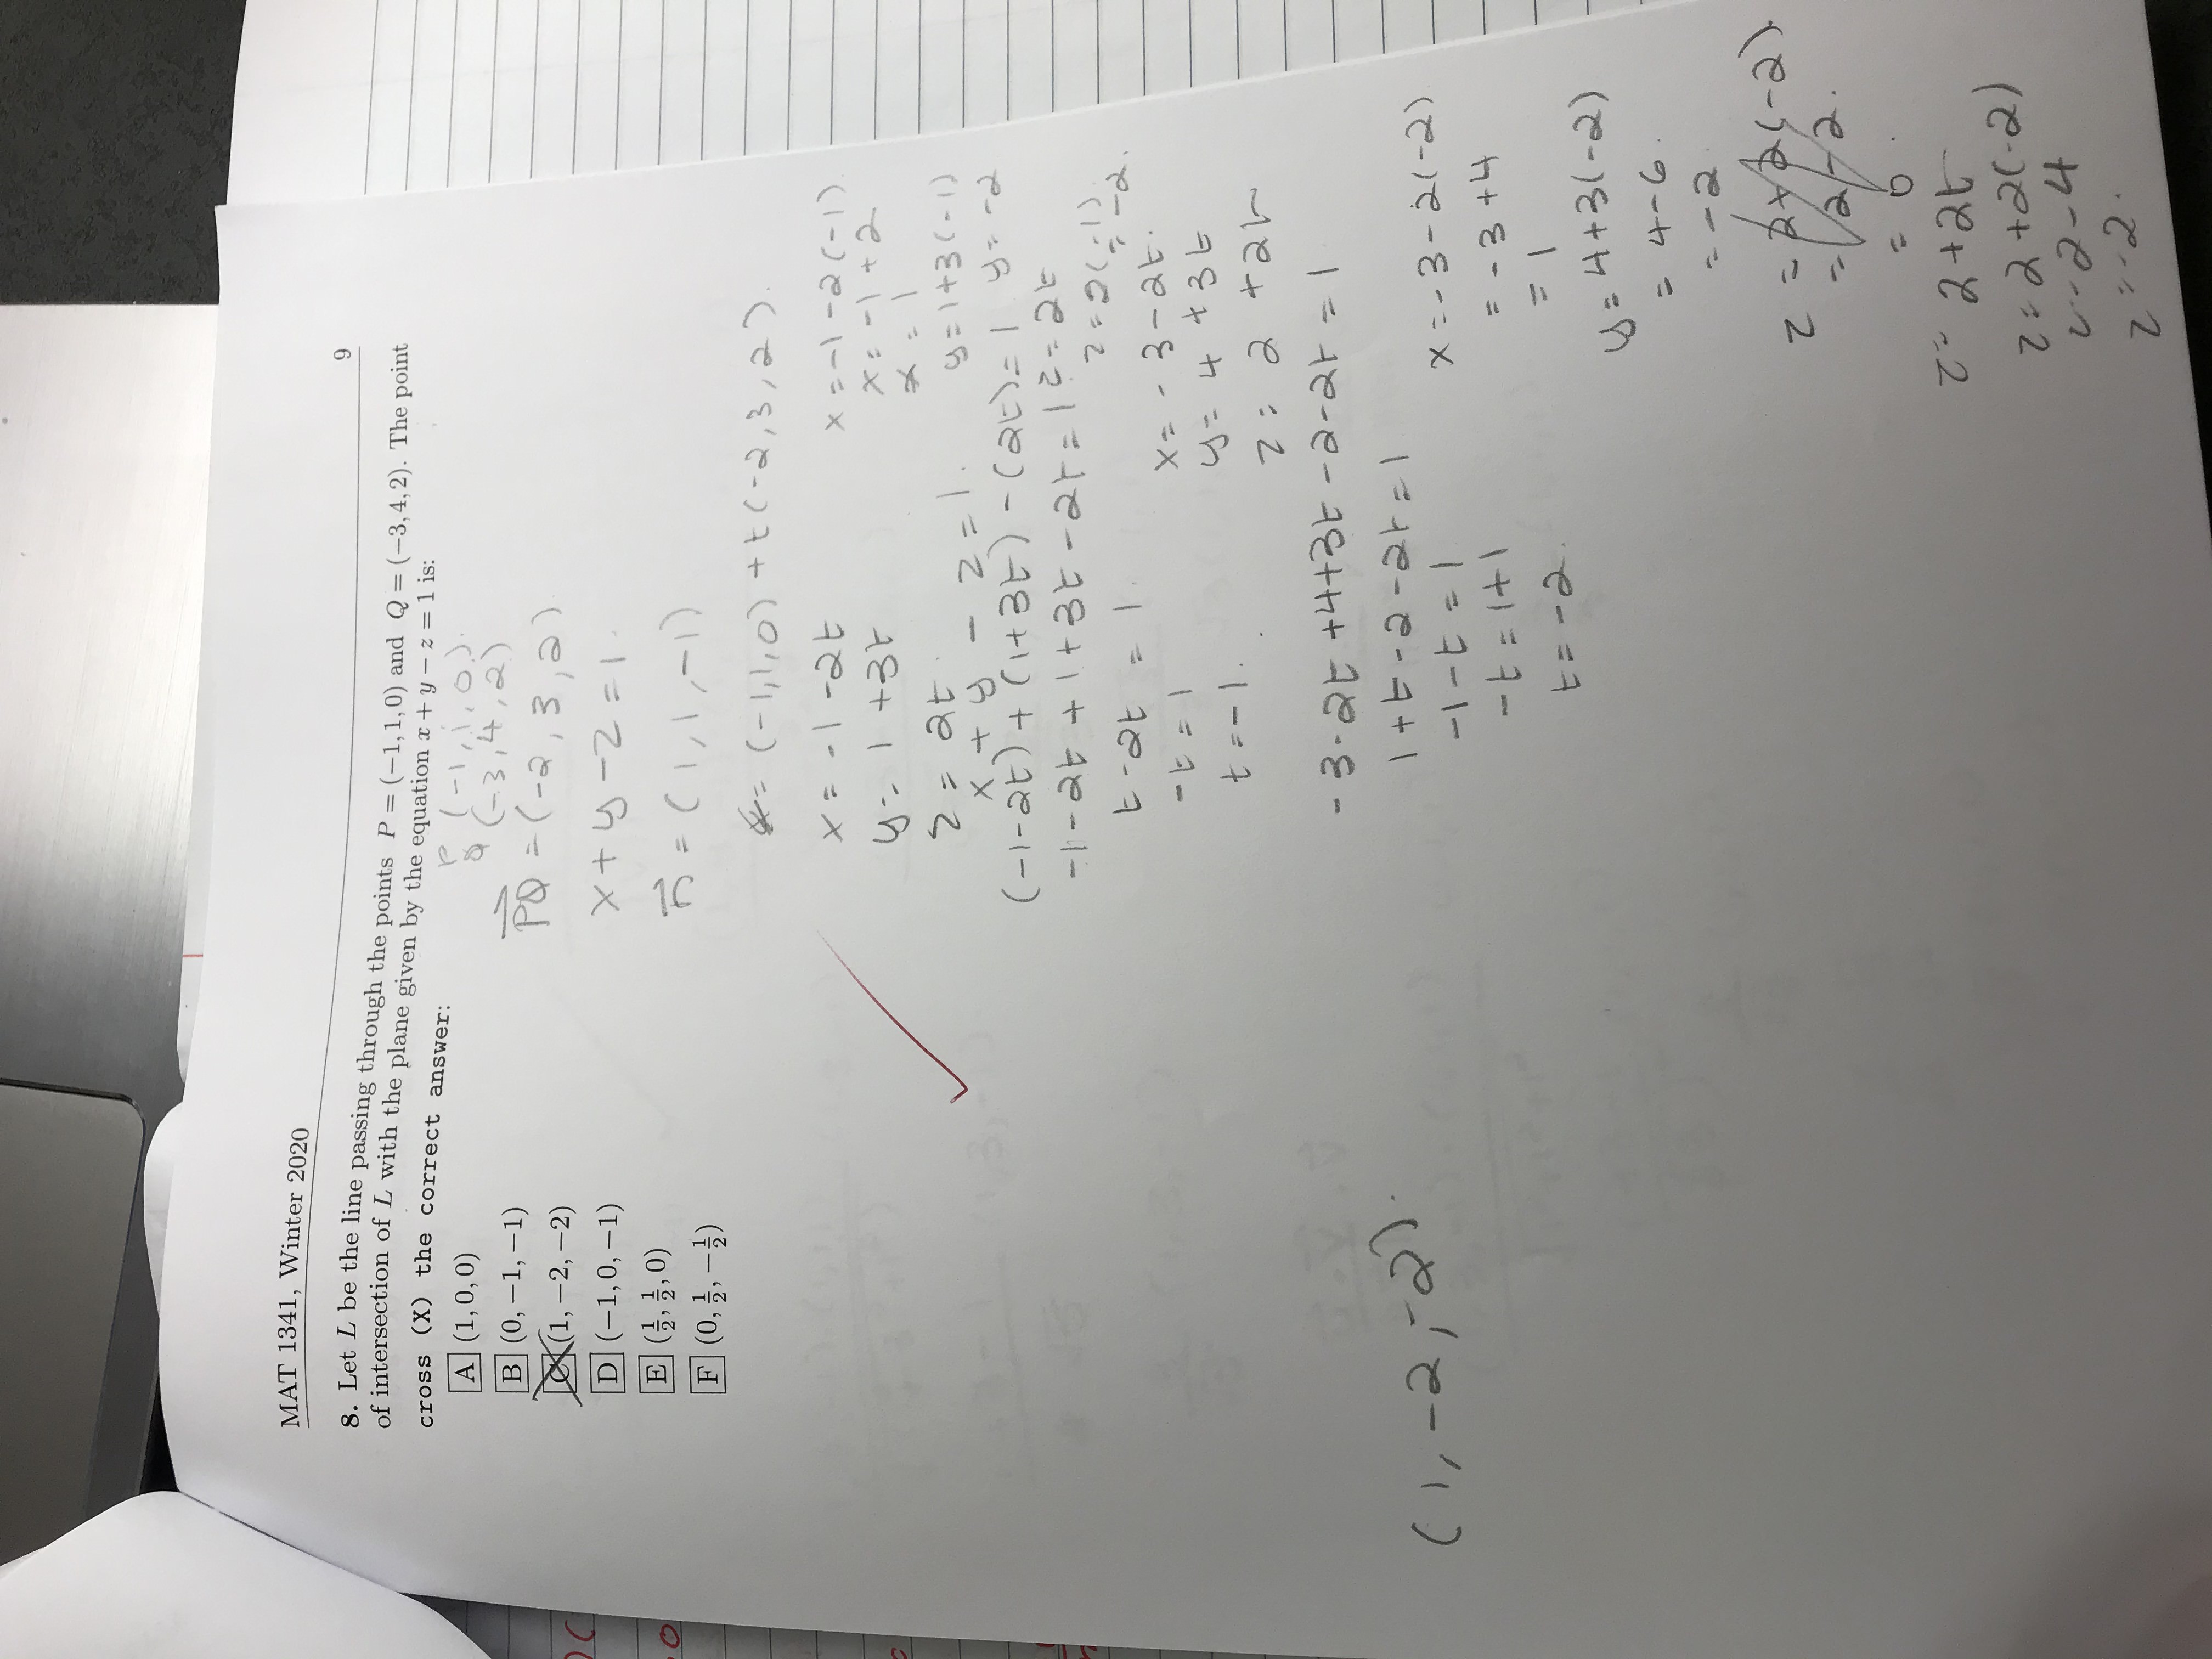 MAT 1341, Winter 2020 9
8. Let L be the line passing through the points P = (−1, 1, 0) and Q = (−3, 4, 2). The point
of intersection of L with the plane given by the equation x + y − z = 1 is:
cross (X) the correct answer:
A (1, 0, 0)
B (0, −1, −1)
C (1, −2, −2)
D (−1, 0, −1)
E (½, ½, 0)
F (0, ½, −½)
P (-1, 1, 0).
Q (-3, 4, 2)
PQ = (-2, 3, 2)
x + y - z = 1.
n = (1, 1, -1)
= (-1, 1, 0) + t(-2, 3, 2).
x = -1 - 2t
y = 1 + 3t
z = 2t.
x + y - z = 1.
(-1-2t) + (1+3t) - (2t) = 1
-1 - 2t + 1 + 3t - 2t = 1
t - 2t = 1.
-t = 1
t = -1.
x = -1 - 2(-1)
x = -1 + 2
x = 1
y = 1 + 3(-1)
y = -2
z = 2t
z = 2(-1)
= -2.
x = -3 - 2t.
y = 4 + 3t
z = 2 + 2t
-3 - 2t + 4 + 3t - 2 - 2t = 1
1 + t - 2 - 2t = 1
-1 - t = 1
-t = 1 + 1
t = -2.
x = -3 - 2(-2)
= -3 + 4
= 1
y = 4 + 3(-2)
= 4 - 6.
= -2
z = 2 + 2(-2).
= 2 - 2.
= 0
z = 2 + 2t
z = 2 + 2(-2)
z = 2 - 4
z = -2.
(1, -2, -2).